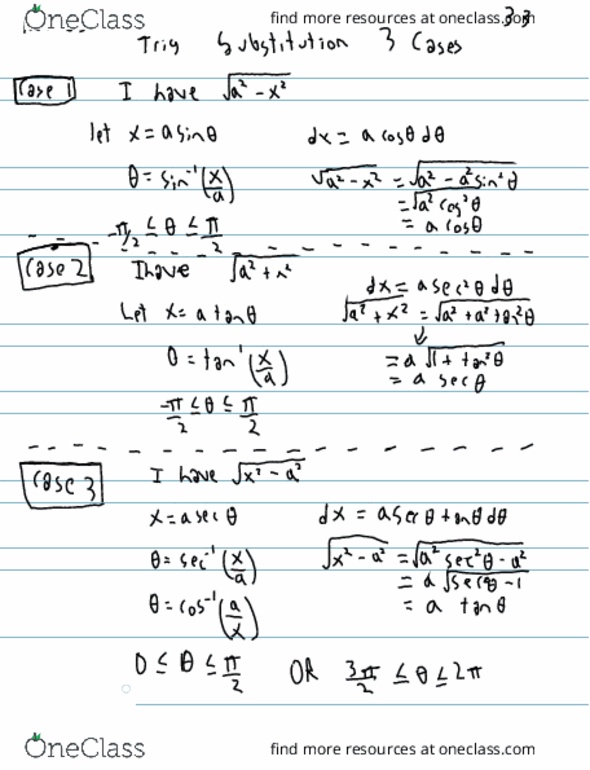 OneClass find more resources at oneclass.com
33
Trig Substitution 3 Cases
Case 1 I have √(a² - x²)
let x = a sinθ dx = a cosθ dθ
θ = sin⁻¹(x/a) √(a² - x²) = √(a² - a² sin²θ)
= √(a² cos²θ)
-π/2 ≤ θ ≤ π/2 = a cosθ
Case 2 I have √(a² + x²)
dx = a sec²θ dθ
Let x = a tanθ √(a² + x²) = √(a² + a² tan²θ)
θ = tan⁻¹(x/a) = a √(1 + tan²θ)
= a secθ
-π/2 ≤ θ ≤ π/2
Case 3 I have √(x² - a²)
x = a secθ dx = a secθ tanθ dθ
θ = sec⁻¹(x/a) √(x² - a²) = √(a² sec²θ - a²)
= a √(sec²θ - 1)
θ = cos⁻¹(a/x) = a tanθ
0 ≤ θ ≤ π/2 OR 3π/2 ≤ θ ≤ 2π
OneClass find more resources at oneclass.com